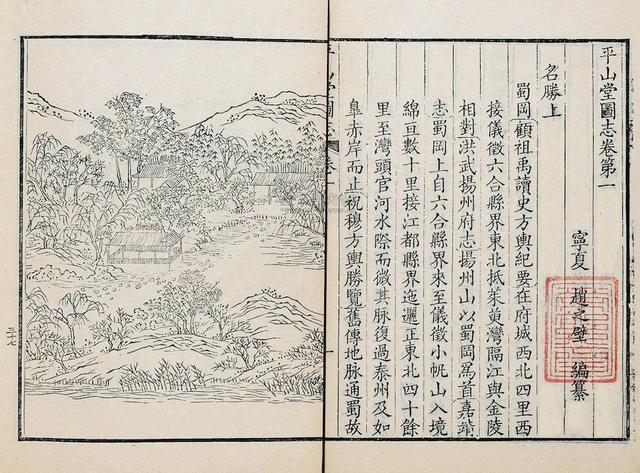 平山堂圖志卷第一
寧夏 趙之壁 編纂
名勝上
蜀岡顧祖禹讀史方輿紀要在府城西北四里西
接儀徵六合縣界東北抵茱萸灣隔江與金陵
相對洪武揚州府志揚州山以蜀岡爲首嘉靖
志蜀岡上自六合縣界來至儀徵小帆山入境
綿亘數十里接江都縣界迤邐正東北四十餘
里至灣頭官河水際而微其脉復過泰州及如
皐赤岸而止祝穆方輿勝覽舊傳地脉通蜀故